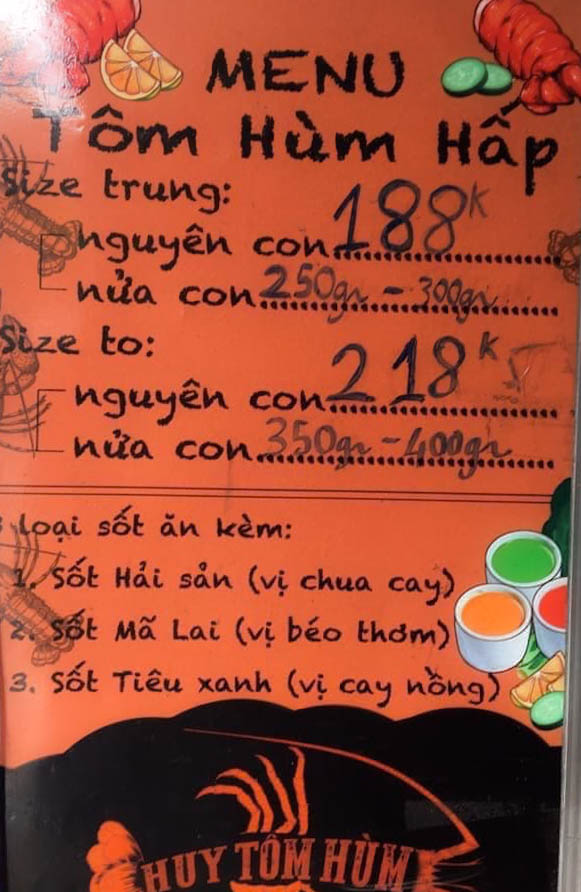 MENU
Tôm Hùm Hấp
Size trung:
nguyên con 188K
nửa con 250gr - 300gr
Size to:
nguyên con 218K
nửa con 350gr - 400gr
loại sốt ăn kèm:
1. Sốt Hải sản (vị chua cay)
2. Sốt Mã Lai (vị béo thơm)
3. Sốt Tiêu xanh (vị cay nồng)
HUY TÔM HÙM